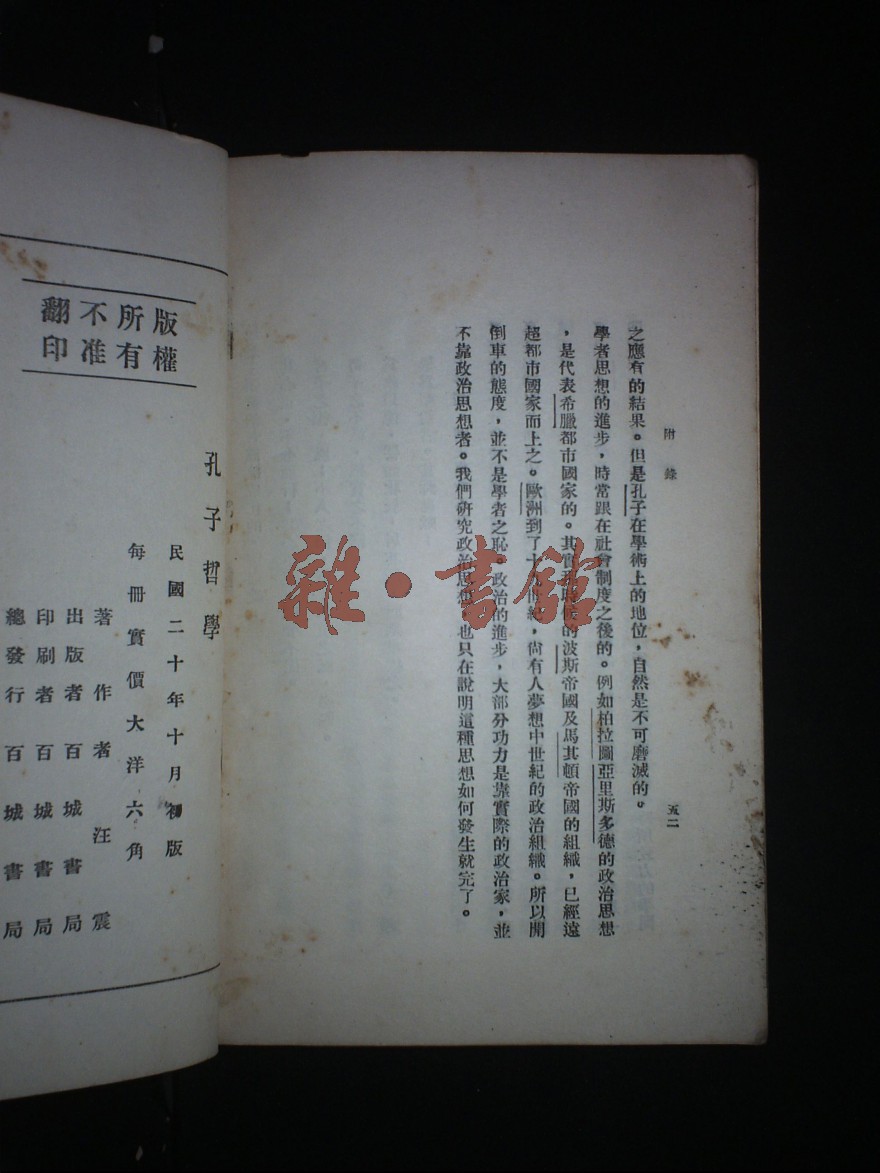 附錄
五二
之應有的結果。但是孔子在學術上的地位，自然是不可磨滅的。
學者思想的進步，時常跟在社會制度之後的。例如柏拉圖亞里斯多德的政治思想
，是代表希臘都市國家的。其實那時候的波斯帝國及馬其頓帝國的組織，已經遠
超都市國家而上之。歐洲到了十九世紀，尙有人夢想中世紀的政治組織。所以開
倒車的態度，並不是學者之恥。政治的進步，大部分功力是靠實際的政治家，並
不靠政治思想者。我們硏究政治思想，也只在說明這種思想如何發生就完了。
雜·書館
版權
所有
不准
翻印
孔子哲學
民國二十年十月初版
每冊實價大洋六角
著作者汪震
出版者百城書局
印刷者百城書局
總發行百城書局